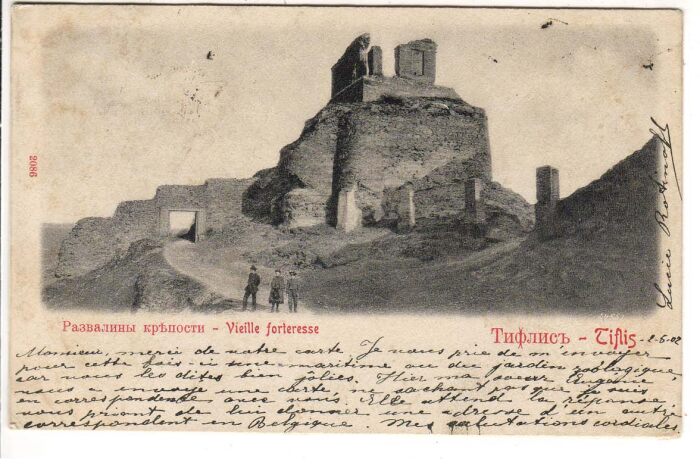 2086
Lucie Rotinoff
Развалины крѣпости - Vieille forteresse
Тифлисъ - Tiflis
2-6-02
Monsieur, merci de votre carte. Je vous prie de m'envoyer
pour cette fois ci une maritime ou du jardin zoologique,
car vous les dites bien jolies. Hier ma soeur Eugénie
vous a envoyé une carte ne sachant pas que je suis
en correspondance avec vous. Elle attend la réponse,
vous priant de lui donner une adresse d'un autre
correspondent en Belgique. Mes salutations cordiales.